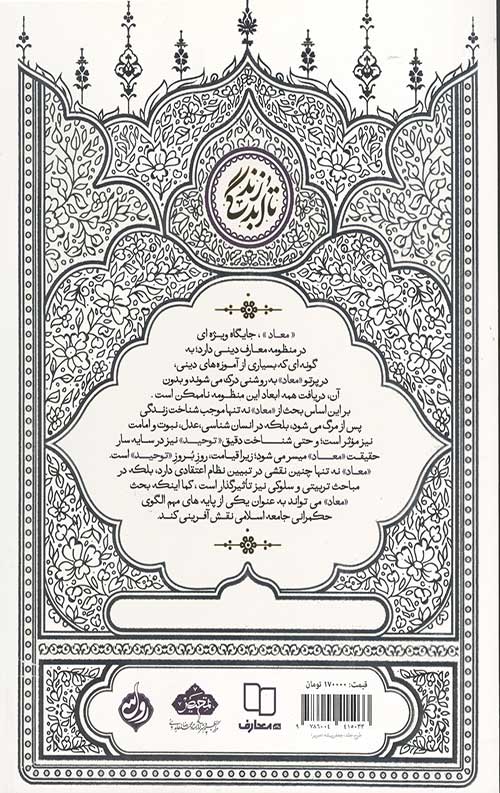 تا ابد زندگی
« معاد » ، جایگاه ویژه ای
در منظومه معارف دینی دارد؛ به
گونه ای که بسیاری از آموزه های دینی،
در پرتو «معاد» به روشنی درک می شوند و بدون
آن، دریافت همه ابعاد این منظومه ناممکن است .
بر این اساس بحث از «معاد» نه تنها موجب شناخت زندگی
پس از مرگ می شود، بلکه در انسان شناسی، عدل، نبوت و امامت
نیز مؤثر است؛ و حتی شناخت دقیق «توحید» نیز در سایه سار
حقیقت «معاد» میسر می شود؛ زیرا قیامت، روز بُروزِ «توحید» است.
«معاد» نه تنها چنین نقشی در تبیین نظام اعتقادی دارد، بلکه در
مباحث تربیتی و سلوکی نیز تأثیرگذار است ، کما اینکه بحث
«معاد» می تواند به عنوان یکی از پایه های مهم الگوی
حکمرانی جامعه اسلامی نقش آفرینی کند.
قیمت: ۱۷۰۰۰۰ تومان
معارف
9 786004 415033